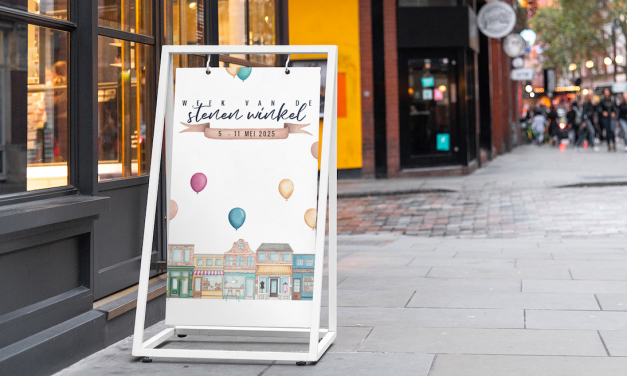 WEEK VAN DE
stenen winkel
5 - 11 MEI 2025